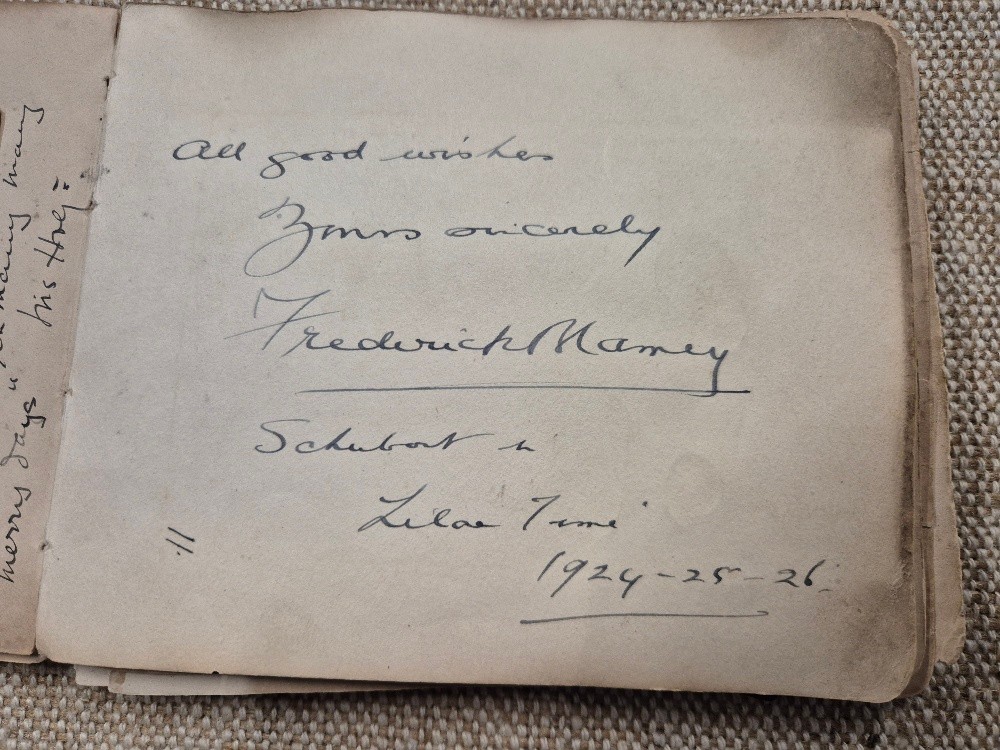 All good wishes
Yours sincerely
Frederick
Schubert in
Lilac Time
1924-25-26.
merry days
many many
his